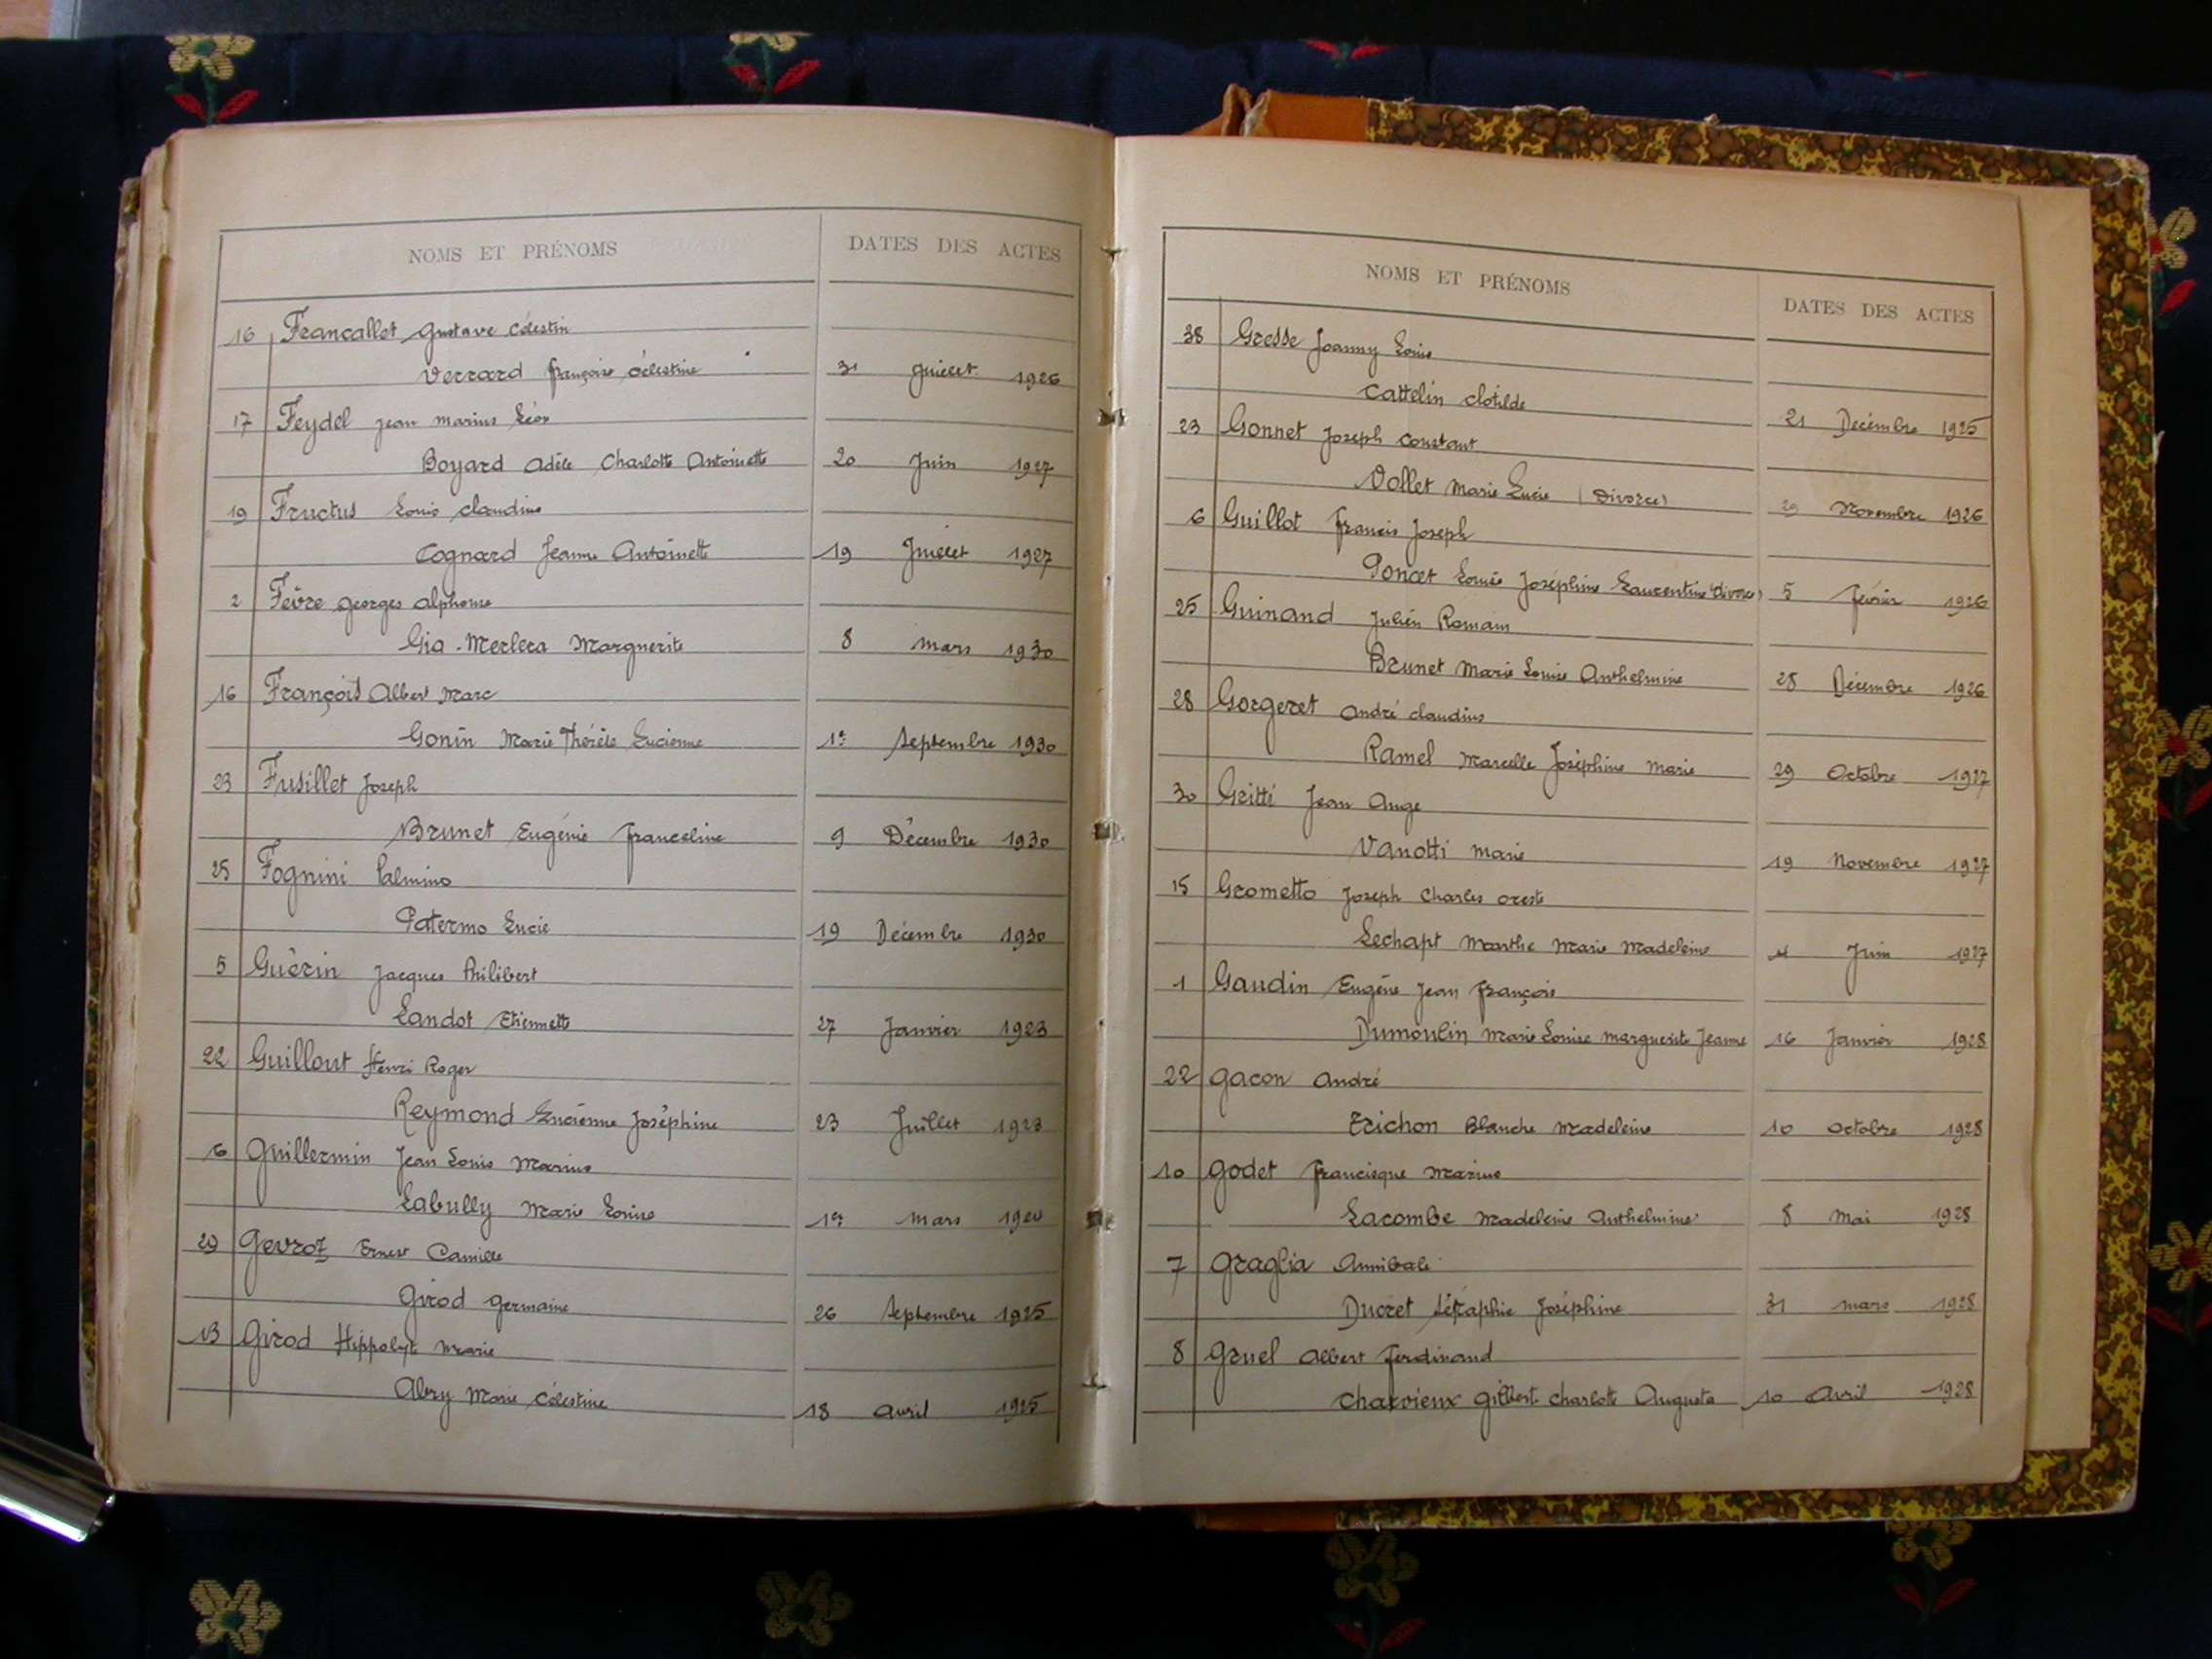 NOMS ET PRÉNOMS DATES DES ACTES
16 Francallet Gustave Célestin
Verrard Françoise Célestine 31 Juillet 1926
17 Feydel Jean Marius Léon
Boyard Adèle Charlotte Antoinette 20 Juin 1927
19 Fructus Louis Claudius
Cognard Jeanne Antoinette 19 Juillet 1927
2 Feÿre Georges Alphonse
Gia-Merlera Marguerite 8 Mars 1930
16 François Albert Marc
Gonin Marie Thérèse Lucienne 1er Septembre 1930
23 Fusillet Joseph
Brunet Eugénie Franceline 9 Décembre 1930
25 Fognini Palmino
Patermo Lucie 19 Décembre 1930
5 Guérin Jacques Philibert
Landot Etiennette 27 Janvier 1923
22 Guillout Henri Roger
Reymond Lucienne Joséphine 23 Juillet 1923
6 Guillermin Jean Louis Marius
Labully Marie Louise 1er Mars 1924
29 Gevroz Ernest Camille
Girod Germaine 26 Septembre 1925
13 Girod Hippolyte Marie
Abry Marie Célestine 18 Avril 1925
NOMS ET PRÉNOMS DATES DES ACTES
38 Gresse Joanny Louis
Cattelin Clotilde 21 Décembre 1925
23 Gonnet Joseph Constant
Vollet Marie Lucie (Divorce) 29 Novembre 1926
6 Guillot Francis Joseph
Poncet Louise Joséphine Laurentine (Divorce) 5 Février 1926
25 Guinand Julien Romain
Brunet Marie Louise Anthelmine 28 Décembre 1926
28 Gorgeret André Claudius
Ramel Marcelle Joséphine Marie 29 Octobre 1927
30 Gritti Jean Ange
Vanotti Marie 19 Novembre 1927
15 Grometto Joseph Charles Oreste
Lechapt Marthe Marie Madeleine 4 Juin 1927
1 Gaudin Eugène Jean François
Dumoulin Marie Louise Marguerite Jeanne 16 Janvier 1928
22 Gacon André
Trichon Blanche Madeleine 10 Octobre 1928
10 Godet Francisque Marius
Lacombe Madeleine Anthelmine 8 Mai 1928
7 Graglia Annibale
Ducret Séraphie Joséphine 31 Mars 1928
8 Gruel Albert Ferdinand
Charvieux Gilberte Charlotte Augusta 10 Avril 1928